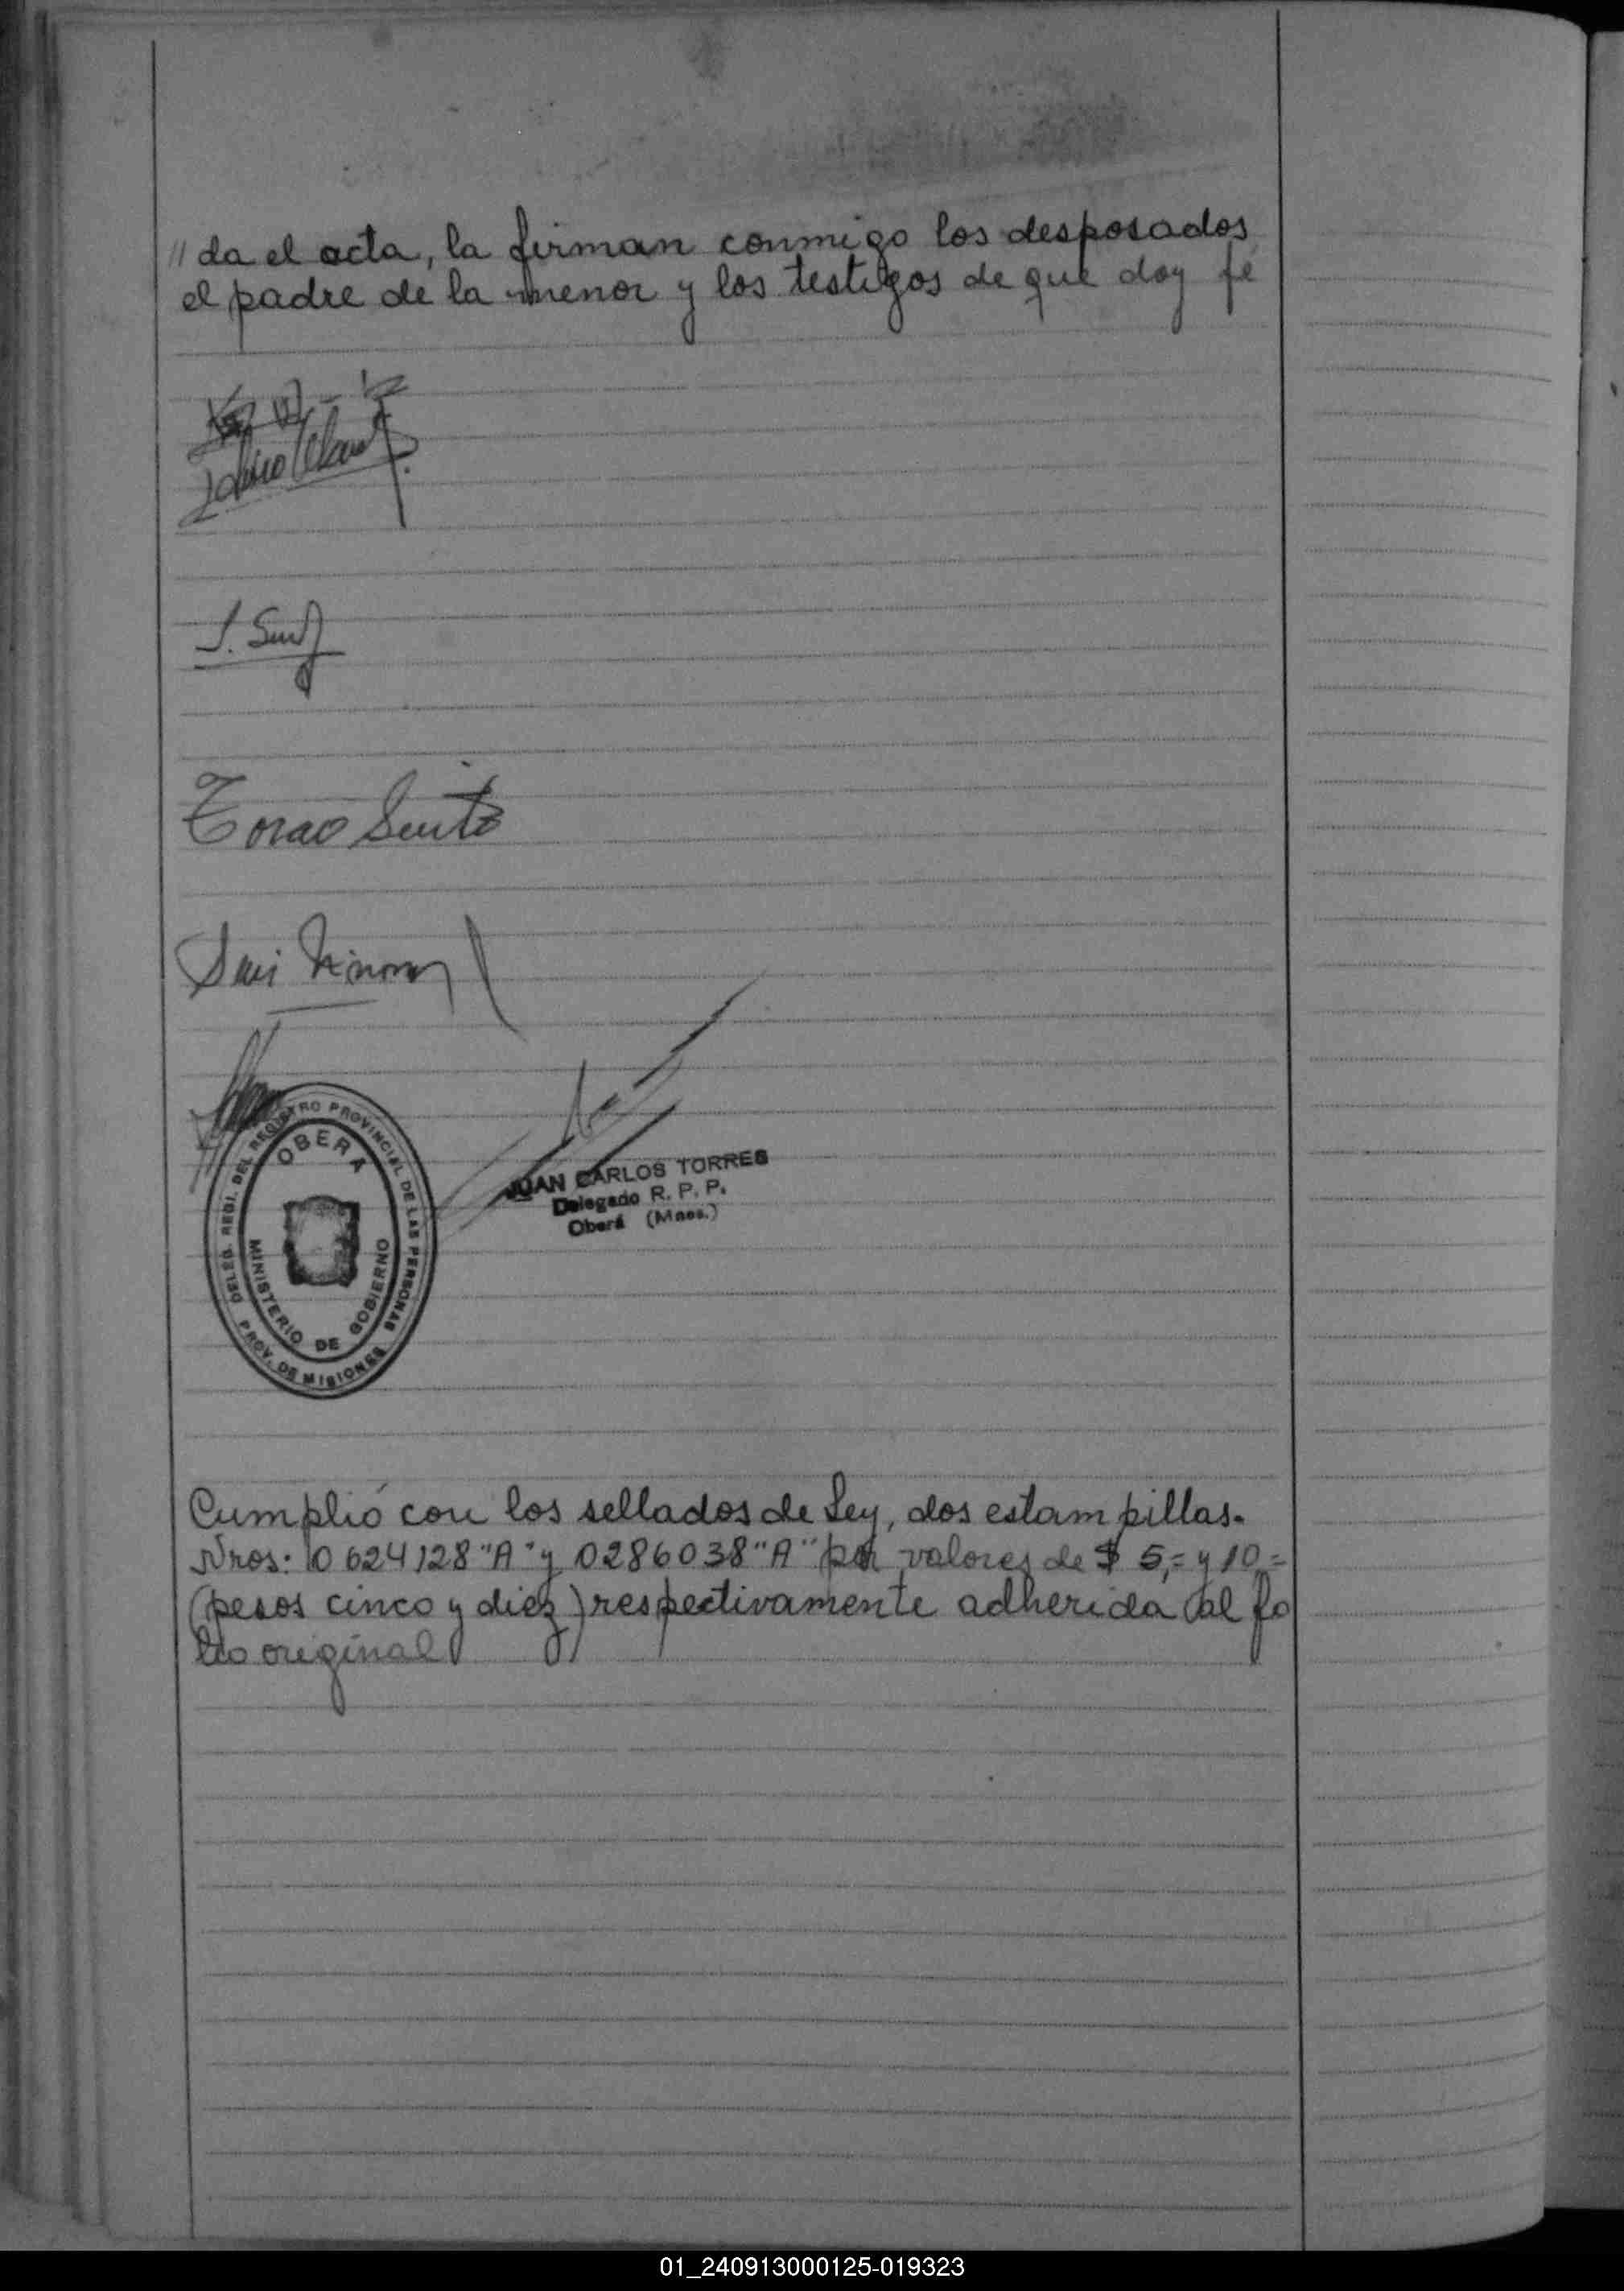 // da el acta, la firman conmigo los desposados
el padre de la menor y los testigos de que doy fé
J.
Torao
OBERA
DELEG. REGI. DEL REGISTRO PROVINCIAL DE LAS PERSONAS
MINISTERIO DE GOBIERNO
PROV. DE MISIONES
JUAN CARLOS TORRES
Delegado R. P. P.
Oberá (Mnes.)
Cumplió con los sellados de Ley, dos estampillas.
Nros: 0624128 "A" y 0286038 "A" por valores de $ 5,= y 10,=
(pesos cinco y diez) respectivamente adherida al fo
lio original
01_240913000125-019323